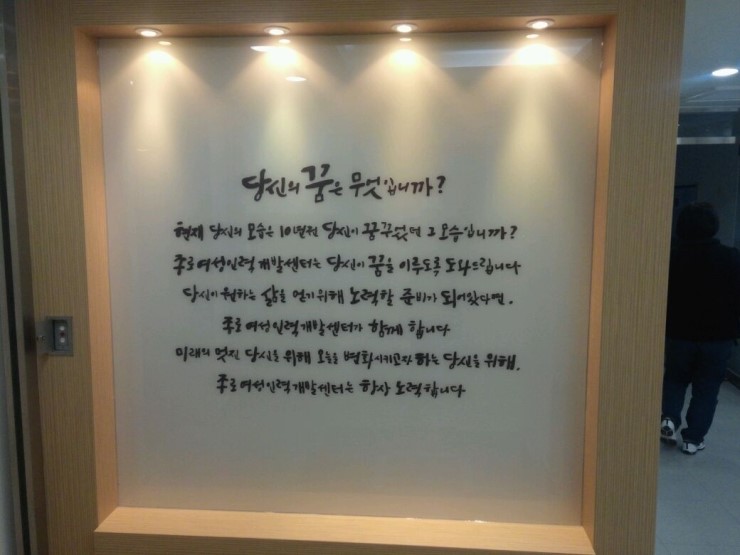 당신의 꿈은 무엇입니까?
현재 당신의 모습은 10년전 당신이 꿈꾸었던 그 모습입니까?
종로여성인력개발센터는 당신이 꿈을 이루도록 도와드립니다
당신이 원하는 삶을 얻기위해 노력할 준비가 되어있다면,
종로여성인력개발센터가 함께 합니다
미래의 멋진 당신을 위해 오늘을 변화시키고자 하는 당신을 위해,
종로여성인력개발센터는 항상 노력합니다